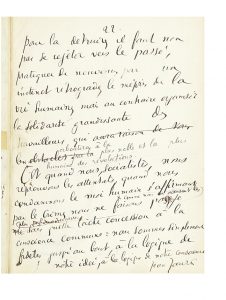 22.
pour la détruire, il faut non
pas se rejeter vers le passé,
pratiquer de nouveau, par un
instinct rétrograde le mépris de la
vie humaine, mais au contraire organiser
la solidarité grandissante des
travailleurs
obstacles
la plus réelle et la plus
humaine des révolutions
Et quand nous, socialistes, nous
réprouvons les attentats, quand nous
condamnons le moi humain s'affirmant
par le crime, nous ne faisons pas
lâche concession à la
conscience commune : nous sommes simplement
fidèles jusqu'au bout à la logique de
notre idée, à la logique de notre conscience
Jean Jaurès